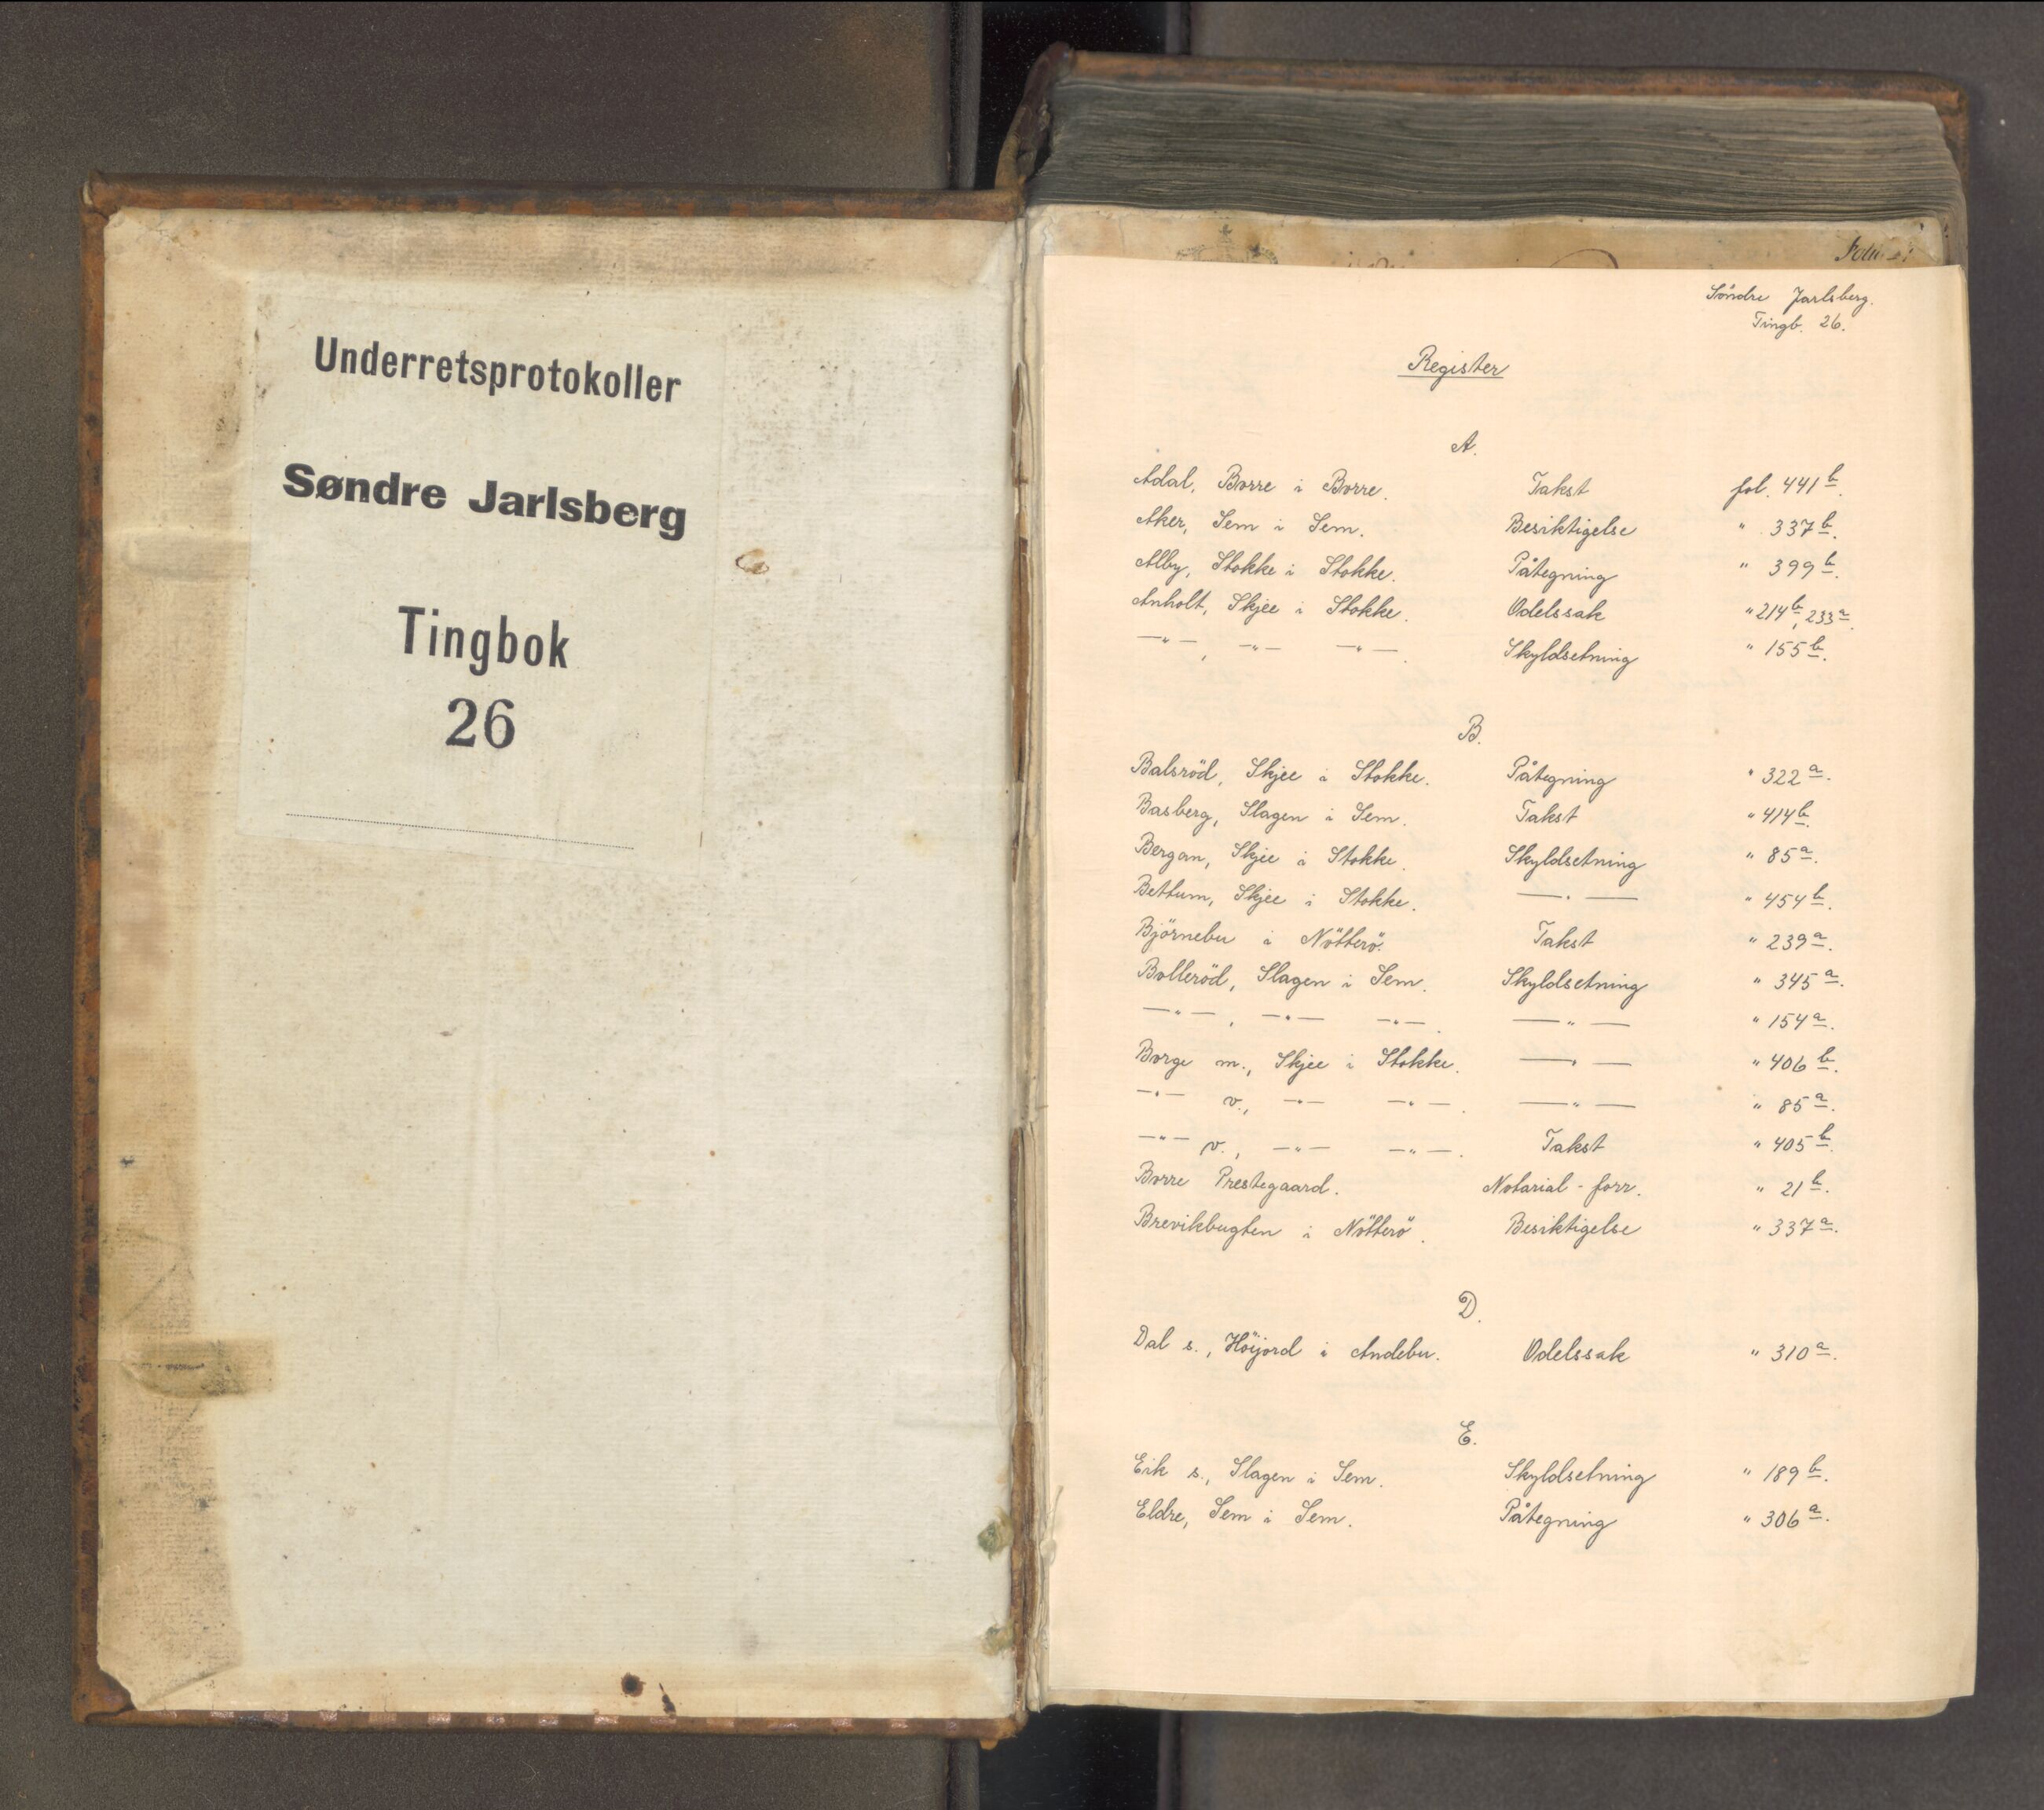 Underretsprotokoller
Søndre Jarlsberg
Tingbok
26
Søndre Jarlsberg.
Tingb. 26.
Register
A.
Adal, Borre i Borre. Takst fol. 441b.
Aker, Sem i Sem. Besiktigelse " 337b.
Alby, Stokke i Stokke. Påtegning " 399b.
Anholt, Skjee i Stokke. Odelssak " 214b, 233a.
—"—, —"— —"—. Skyldsetning " 155b.
B.
Balsröd, Skjee i Stokke. Påtegning " 322a.
Basberg, Slagen i Sem. Takst " 414b.
Bergan, Skjee i Stokke. Skyldsetning " 85a.
Bettum, Skjee i Stokke. —"— " 454b.
Björnebu i Nötterö. Takst " 239a.
Bolleröd, Slagen i Sem. Skyldsetning " 345a.
—"—, —"— —"—. —"— " 154a.
Borge m., Skjee i Stokke. —"— " 406b.
—"— v., —"— —"—. —"— " 85a.
—"— v., —"— —"—. Takst " 405b.
Borre Prestegaard. Notarial-forr. " 21b.
Brevikbugten i Nötterö. Besiktigelse " 337a.
D.
Dal s., Höijord i Andebu. Odelssak " 310a.
E.
Eik s., Slagen i Sem. Skyldsetning " 189b.
Eldre, Sem i Sem. Påtegning " 306a.